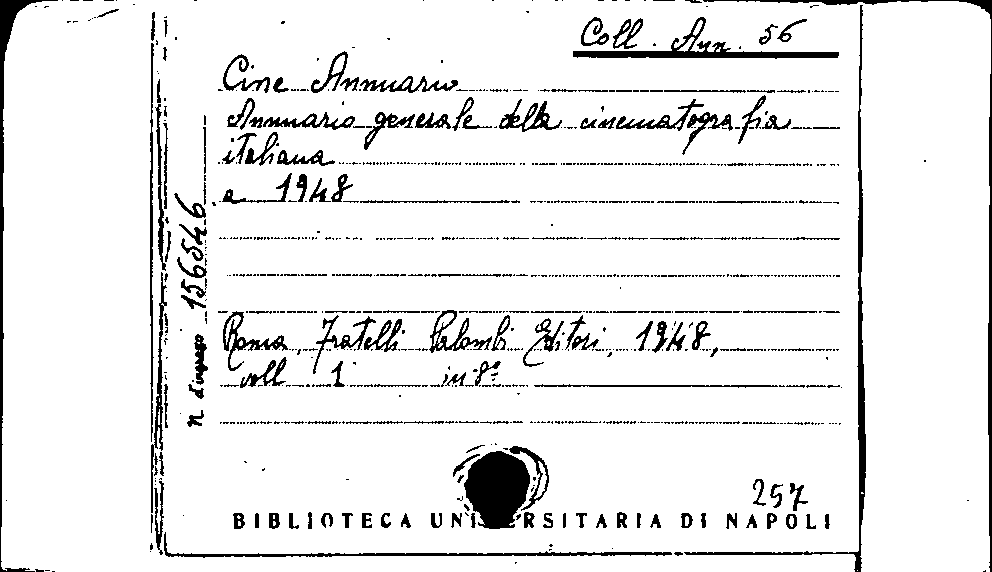 Coll. Ann. 56
Cine Annuario
Annuario generale della cinematografia
italiana
a. 1948
n. d'ingresso 156546
Roma, Fratelli Palombi Editori, 1948,
voll 1 in-8º
257
BIBLIOTECA UNIVERSITARIA DI NAPOLI